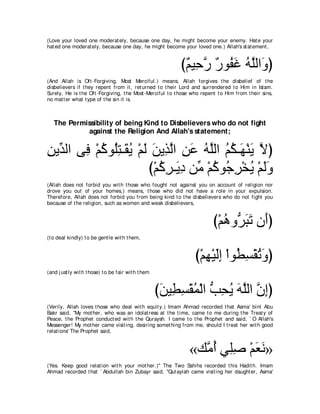 (Love your loved one moderately, because one day, he might become your enemy. Hate your
hated one moderately, because one day, he might become your loved one.) Allah's statement,
(وَاللَّهُ غَفُورٌ رَّحِيمٌ)
(And Allah is Oft-Forgiving, Most Merciful.) means, Allah forgives the disbelief of the
disbelievers if they repent from it, returned to their Lord and surrendered to Him in Islam.
Surely, He is the Oft-Forgiving, the Most-Merciful to those who repent to Him from their sins,
no matter what type of the sin it is.
The Permissibility of being Kind to Disbelievers who do not fight
against the Religion And Allah's statement;
(لاَّ يَنْهَـكُمُ اللَّهُ عَنِ الَّذِينَ لَمْ يُقَـتِلُوكُمْ فِى الدِّينِ
وَلَمْ يُخْرِجُوكُمْ مِّن دِيَـرِكُمْ)
(Allah does not forbid you with those who fought not against you on account of religion nor
drove you out of your homes,) means, those who did not have a role in your expulsion.
Therefore, Allah does not forbid you from being kind to the disbelievers who do not fight you
because of the religion, such as women and weak disbelievers,
(أَن تَبَرُّوهُمْ)
(to deal kindly) to be gentle with them,
(وَتُقْسِطُواْ إِلَيْهِمْ)
(and justly with those) to be fair with them
(إِنَّ اللَّهَ يُحِبُّ الْمُقْسِطِينَ)
(Verily, Allah loves those who deal with equity.) Imam Ahmad recorded that Asma' bint Abu
Bakr said, "My mother, who was an idolatress at the time, came to me during the Treaty of
Peace, the Prophet conducted with the Quraysh. I came to the Prophet and said, `O Allah's
Messenger! My mother came visiting, desiring something from me, should I treat her with good
relations' The Prophet said,
«نَعَمْ صِلِي أُمَّكِ»
(Yes. Keep good relation with your mother.)'' The Two Sahihs recorded this Hadith. Imam
Ahmad recorded that `Abdullah bin Zubayr said, "Qutaylah came visiting her daughter, Asma'